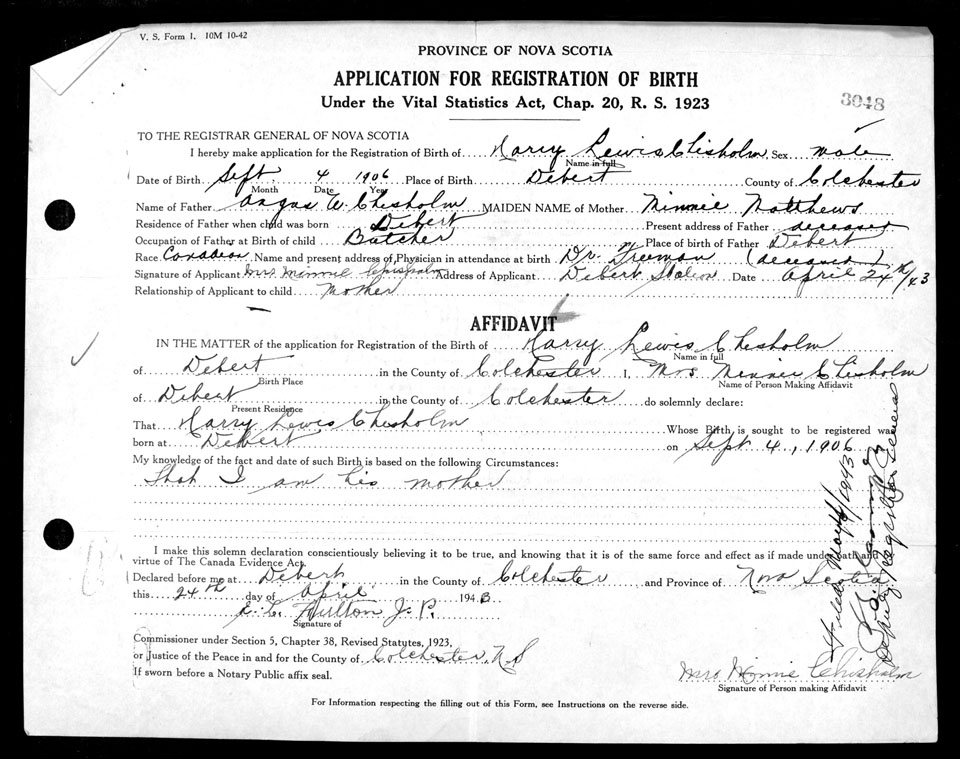 V. S. Form 1. 10M 10-42
PROVINCE OF NOVA SCOTIA
APPLICATION FOR REGISTRATION OF BIRTH
Under the Vital Statistics Act, Chap. 20, R. S. 1923
3048
TO THE REGISTRAR GENERAL OF NOVA SCOTIA
I hereby make application for the Registration of Birth of Harry Lewis Chisholm, Sex male
Name in full
Date of Birth Sept. 4 1906 Place of Birth Debert County of Colchester
Month Date Year
Name of Father Angus W. Chesholm MAIDEN NAME of Mother Minnie Matthews
Residence of Father when child was born Debert Present address of Father deceased
Occupation of Father at Birth of child Butcher Place of birth of Father Debert
Race Canadian Name and present address of Physician in attendance at birth Dr. Freeman (deceased)
Signature of Applicant Mrs Minnie Chisholm Address of Applicant Debert Station Date April 24th/43
Relationship of Applicant to child Mother
AFFIDAVIT
IN THE MATTER of the application for Registration of the Birth of Harry Lewis Chisholm
Name in full
of Debert in the County of Colchester I, Mrs Minnie Chisholm
Birth Place Name of Person Making Affidavit
of Debert in the County of Colchester do solemnly declare:
Present Residence
That Harry Lewis Chesholm Whose Birth is sought to be registered was
born at Debert on Sept 4, 1906
My knowledge of the fact and date of such Birth is based on the following Circumstances:
That I am his mother
I make this solemn declaration conscientiously believing it to be true, and knowing that it is of the same force and effect as if made under oath and
virtue of The Canada Evidence Act.
Declared before me at Debert in the County of Colchester and Province of Nova Scotia
this 24th day of April 1943
E. L. Fulton J. P.
Signature of
Commissioner under Section 5, Chapter 38, Revised Statutes, 1923,
or Justice of the Peace in and for the County of Colchester, N S
If sworn before a Notary Public affix seal.
Mrs Minnie Chisholm
Signature of Person making Affidavit
For Information respecting the filling out of this Form, see Instructions on the reverse side.
Filed 1943
Deputy Registrar General